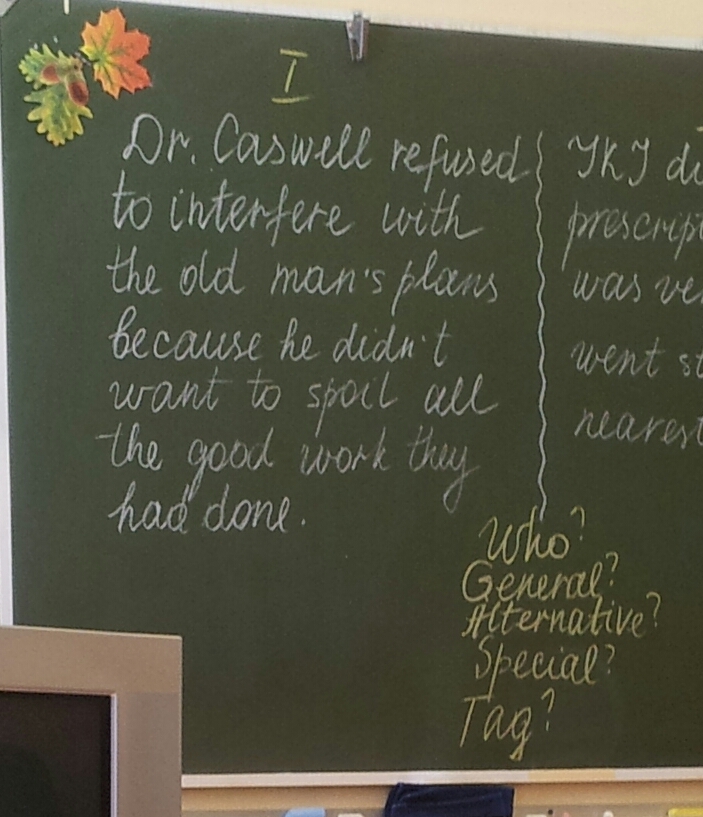 I
Dr. Caswell refused
to interfere with
the old man's plans
because he didn't
want to spoil all
the good work they
had done.
JKJ
was
went
nearest
Who?
General?
Alternative?
Special?
Tag?